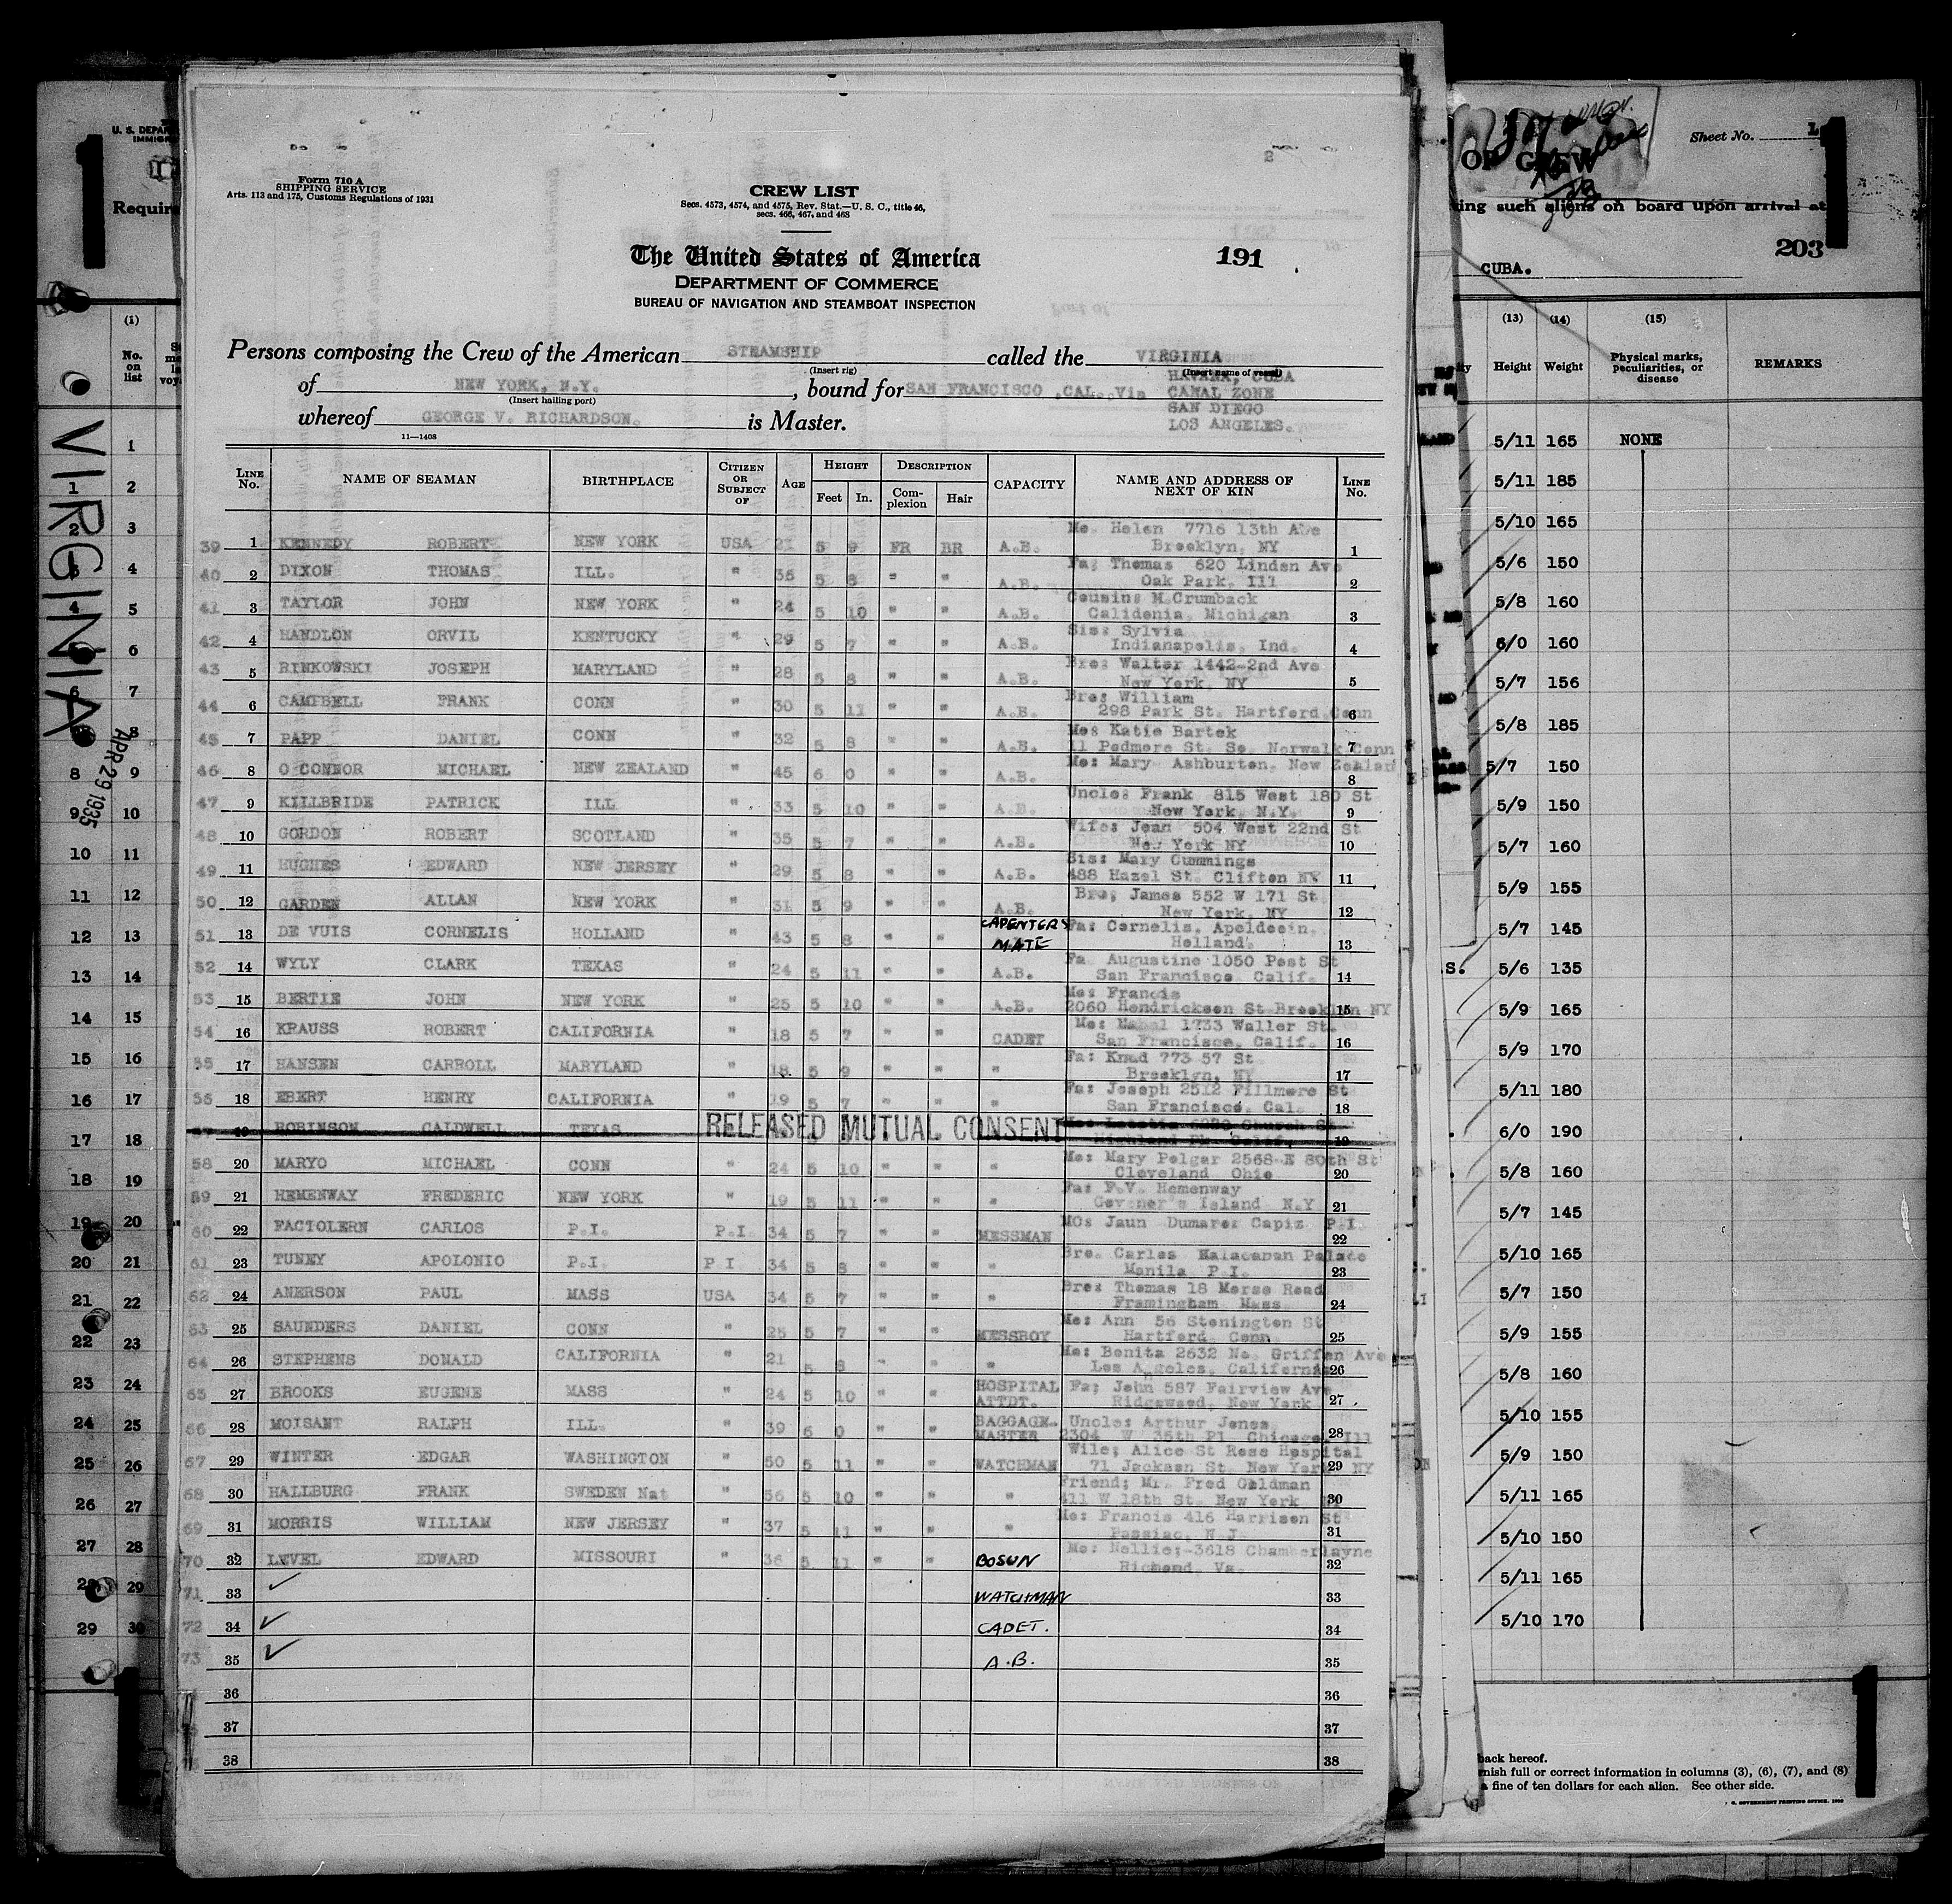 Form 710 A
SHIPPING SERVICE
Arts. 113 and 175, Customs Regulations of 1931
CREW LIST
Secs. 4573, 4574, and 4575, Rev. Stat.—U. S. C., title 46,
secs. 466, 467, and 468
The United States of America
DEPARTMENT OF COMMERCE
BUREAU OF NAVIGATION AND STEAMBOAT INSPECTION
191
2
Persons composing the Crew of the American STEAMSHIP called the VIRGINIA
(Insert rig) (Insert name of vessel)
of NEW YORK, N.Y., bound for SAN FRANCISCO, CAL., Via HAVANA, CUBA
(Insert hailing port) CANAL ZONE
SAN DIEGO
whereof GEORGE V. RICHARDSON. is Master. LOS ANGELES.
11—1408
LINE No. NAME OF SEAMAN BIRTHPLACE CITIZEN OR SUBJECT OF AGE HEIGHT Feet In. DESCRIPTION Complexion Hair CAPACITY NAME AND ADDRESS OF NEXT OF KIN LINE No.
39 1 KENNEDY ROBERT NEW YORK USA 21 5 9 FR BR A.B. Mo. Helen 7716 13th Ave Brooklyn, NY 1
40 2 DIXON THOMAS ILL. " 36 5 8 " " A.B. Fa; Thomas 620 Linden Ave Oak Park, Ill 2
41 3 TAYLOR JOHN NEW YORK " 24 5 10 " " A.B. Cousin: M.Crumback Calidenia, Michigan 3
42 4 HANDLON ORVIL KENTUCKY " 29 5 7 " " A.B. Sis: Sylvia Indianapolis, Ind. 4
43 5 RINKOWSKI JOSEPH MARYLAND " 28 5 8 " " A.B. Bro: Walter 1442-2nd Ave New York, NY 5
44 6 CAMPBELL FRANK CONN " 30 5 11 " " A.B. Bro: William 298 Park St. Hartford Conn 6
45 7 PAPP DANIEL CONN " 32 5 8 " " A.B. Mo: Katie Bartek 11 Podmore St. So. Norwalk Conn 7
46 8 O CONNOR MICHAEL NEW ZEALAND " 45 6 0 " " A.B. Mo: Mary Ashburton, New Zealan 8
47 9 KILLBRIDE PATRICK ILL " 33 5 10 " " A.B. Uncle: Frank 815 West 180 St New York, N.Y. 9
48 10 GORDON ROBERT SCOTLAND " 35 5 7 " " A.B. Wife: Jean 504 West 22nd St New York NY 10
49 11 HUGHES EDWARD NEW JERSEY " 29 5 8 " " A.B. Sis: Mary Cummings 488 Hazel St. Clifton NY 11
50 12 GARDEN ALLAN NEW YORK " 31 5 9 " " A.B. Bro; James 552 W 171 St New York, NY 12
51 13 DE VUIS CORNELIS HOLLAND " 43 5 8 " " CAPENTERS MATE Fa: Cornelis, Holland. 13
52 14 WYLY CLARK TEXAS " 24 5 11 " " A.B. Fa Augustine 1050 Post St San Francisco, Calif. 14
53 15 BERTIE JOHN NEW YORK " 25 5 10 " " A.B. Mo: Francis 2060 Hendrickson St Brooklyn NY 15
54 16 KRAUSS ROBERT CALIFORNIA " 18 5 7 " " CADET Mo: 1733 Waller St. San Francisco, Calif. 16
55 17 HANSEN CARROLL MARYLAND " 18 5 9 " " " Fa: 773 57 St Brooklyn, NY 17
56 18 EBERT HENRY CALIFORNIA " 19 5 7 " " " Fa: Joseph 2512 Fillmore St San Francisco, Cal. 18
19 ROBINSON CALDWELL TEXAS RELEASED MUTUAL CONSENT 19
58 20 MARYO MICHAEL CONN " 24 5 10 " " " Mo: Mary Polgar 2568 E 80th St Cleveland Ohio 20
59 21 HEMENWAY FREDERIC NEW YORK " 19 5 11 " " " Fa: F.V. Hemenway Govener's Island N.Y 21
60 22 FACTOLERN CARLOS P.I. P.I. 34 5 7 " " MESSMAN MO: Jaun Dumarez Capiz P.I. 22
61 23 TUNEY APOLONIO P.I. P I 34 5 8 " " " Bro. Carlos Malacanan Palace Manila P.I. 23
62 24 ANERSON PAUL MASS USA 34 5 7 " " Bro: Thomas 18 Morse Road Framingham Mass 24
63 25 SAUNDERS DANIEL CONN " 25 5 7 " " MESSBOY Mo: Ann 56 Stonington St Hartford Conn 25
64 26 STEPHENS DONALD CALIFORNIA " 21 5 8 " " " Mo: Benita 2632 No. Griffen Ave Los Angeles, California 26
65 27 BROOKS EUGENE MASS " 24 5 10 " " HOSPITAL ATTDT. Fa; John 587 Fairview Ave Ridgewood, New York 27
66 28 MOISANT RALPH ILL. " 39 6 0 " " BAGGAGE MASTER Uncle: Arthur Jones 2304 W 35th Pl Chicago Ill 28
67 29 WINTER EDGAR WASHINGTON " 50 5 11 " " WATCHMAN Wife; Alice St Rose Hospital 71 Jackson St. New York NY 29
68 30 HALLBURG FRANK SWEDEN Nat " 56 5 10 " " " Friend; Mr. Fred Goldman 411 W 18th St. New York 30
69 31 MORRIS WILLIAM NEW JERSEY " 37 5 11 " " " Mo: Francis 416 Harrison St Passiac, N.J 31
70 32 LEVEL EDWARD MISSOURI " 36 5 11 " " BOSUN Mo: Nellie;-3618 Chamberlayne Richond, Va. 32
71 33 WATCHMAN 33
72 34 CADET. 34
73 35 A.B. 35
36 36
37 37
38 38
1
U. S. DEPAR
IMMIGR
Require
(1)
No. on list
VIRGINIA
APR 29 1935
1
1 2
2 3
4
4 5
6
6 7
8
8 9
9 10
10 11
11 12
12 13
13 14
14 15
15 16
16 17
17 18
18 19
19 20
20 21
21 22
22 23
23 24
24 25
25 26
26 27
27 28
28 29
29 30
OF CREW
Sheet No. 1
1
ing such aliens on board upon arrival at
203
CUBA.
(13) (14) (15)
Height Weight Physical marks, peculiarities, or disease REMARKS
5/11 165 NONE
5/11 185
5/10 165
5/6 150
5/8 160
6/0 160
5/7 156
5/8 185
5/7 150
5/9 150
5/7 160
5/9 155
5/7 145
S. 5/6 135
5/9 165
5/9 170
5/11 180
6/0 190
5/8 160
5/7 145
5/10 165
5/7 150
5/9 155
5/8 160
5/10 155
5/9 150
5/11 165
5/10 150
5/11 165
5/10 170
back hereof.
nish full or correct information in columns (3), (6), (7), and (8)
a fine of ten dollars for each alien. See other side.
GOVERNMENT PRINTING OFFICE
1